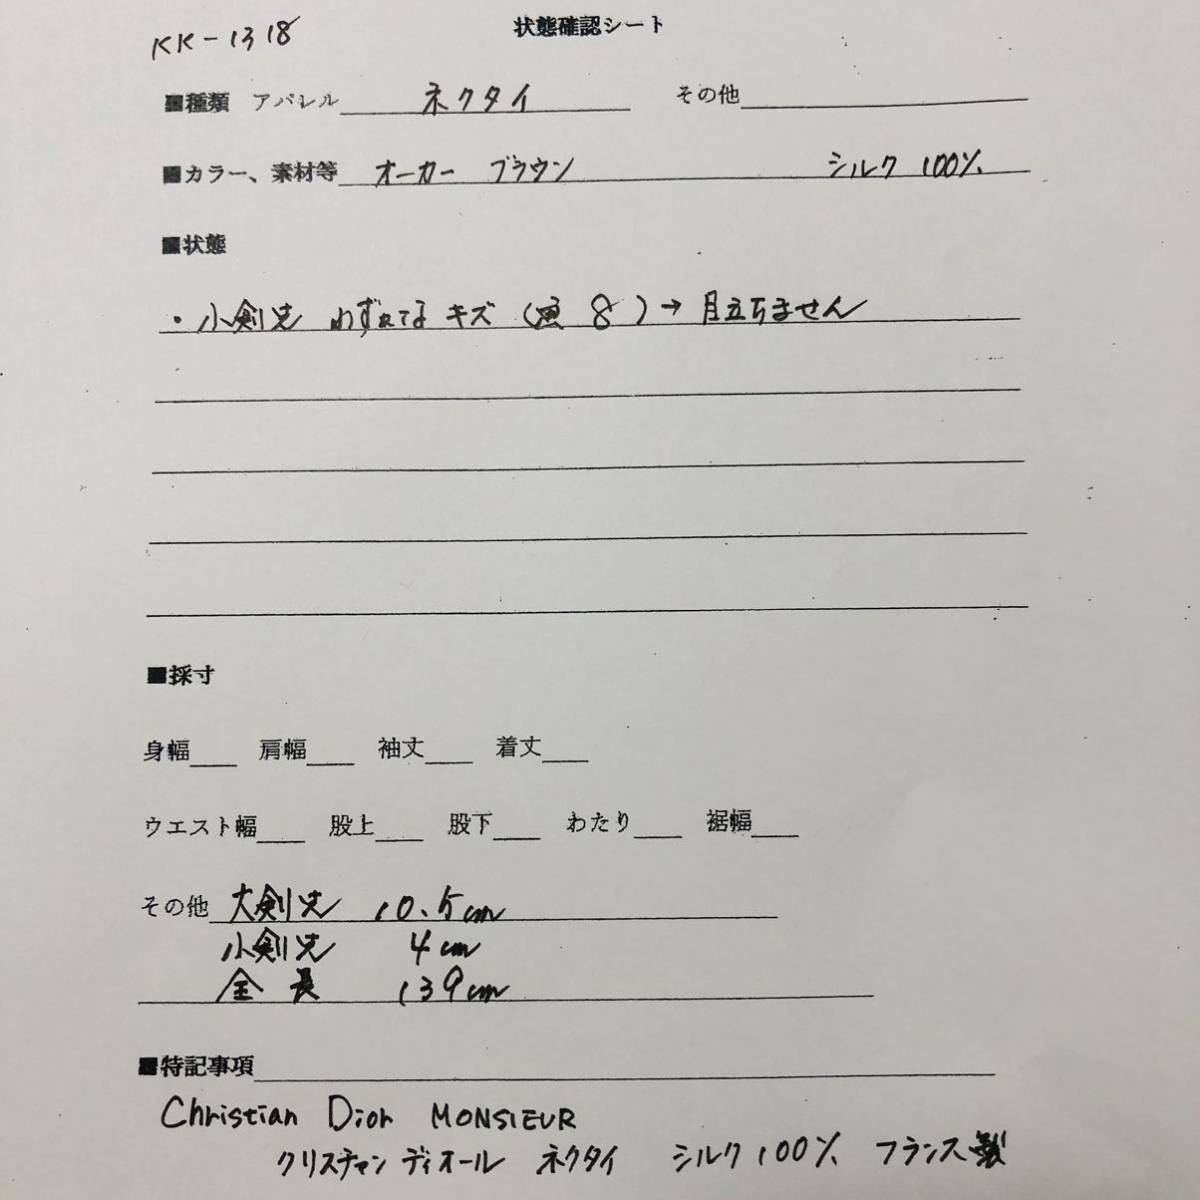 KK-1318
状態確認シート
■種類 アパレル ネクタイ その他
■カラー、素材等 オーカー ブラウン シルク 100%
■状態
・小剣先 わずかな キズ ( 8 ) → 目立ちません
■採寸
身幅 肩幅 袖丈 着丈
ウエスト幅 股上 股下 わたり 裾幅
その他 大剣先 10.5cm
小剣先 4cm
全長 139cm
■特記事項
Christian Dior MONSIEUR
クリスチャン ディオール ネクタイ シルク 100% フランス製